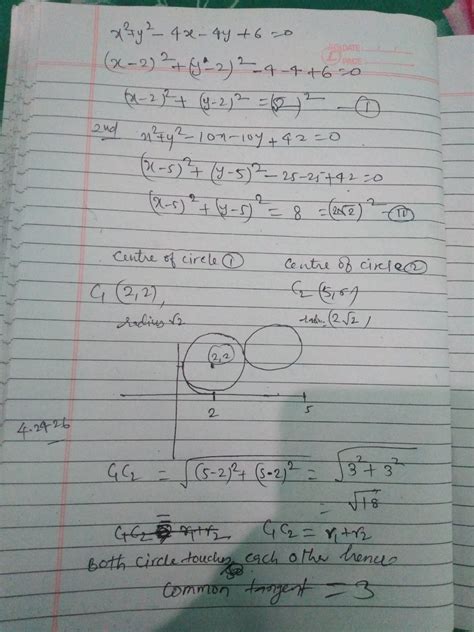 DATE
PAGE
x²+y²-4x-4y+6=0
(x-2)²+(y-2)²-4-4+6=0
(x-2)²+(y-2)²=(√2)² -①
2nd x²+y²-10x-10y+42=0
(x-5)²+(y-5)²-25-25+42=0
(x-5)²+(y-5)²=8=(2√2)² -②
Centre of circle ① Centre of circle ②
C₁ (2,2), C₂ (5,5)
radius √2 radius (2√2)
(2,2)
2 5
4.2426
C₁C₂ = √(5-2)²+(5-2)² = √3²+3²
= √18
C₁C₂ r₁+r₂ C₁C₂ = r₁+r₂
Both circle touches each other hence
common tangent = 3